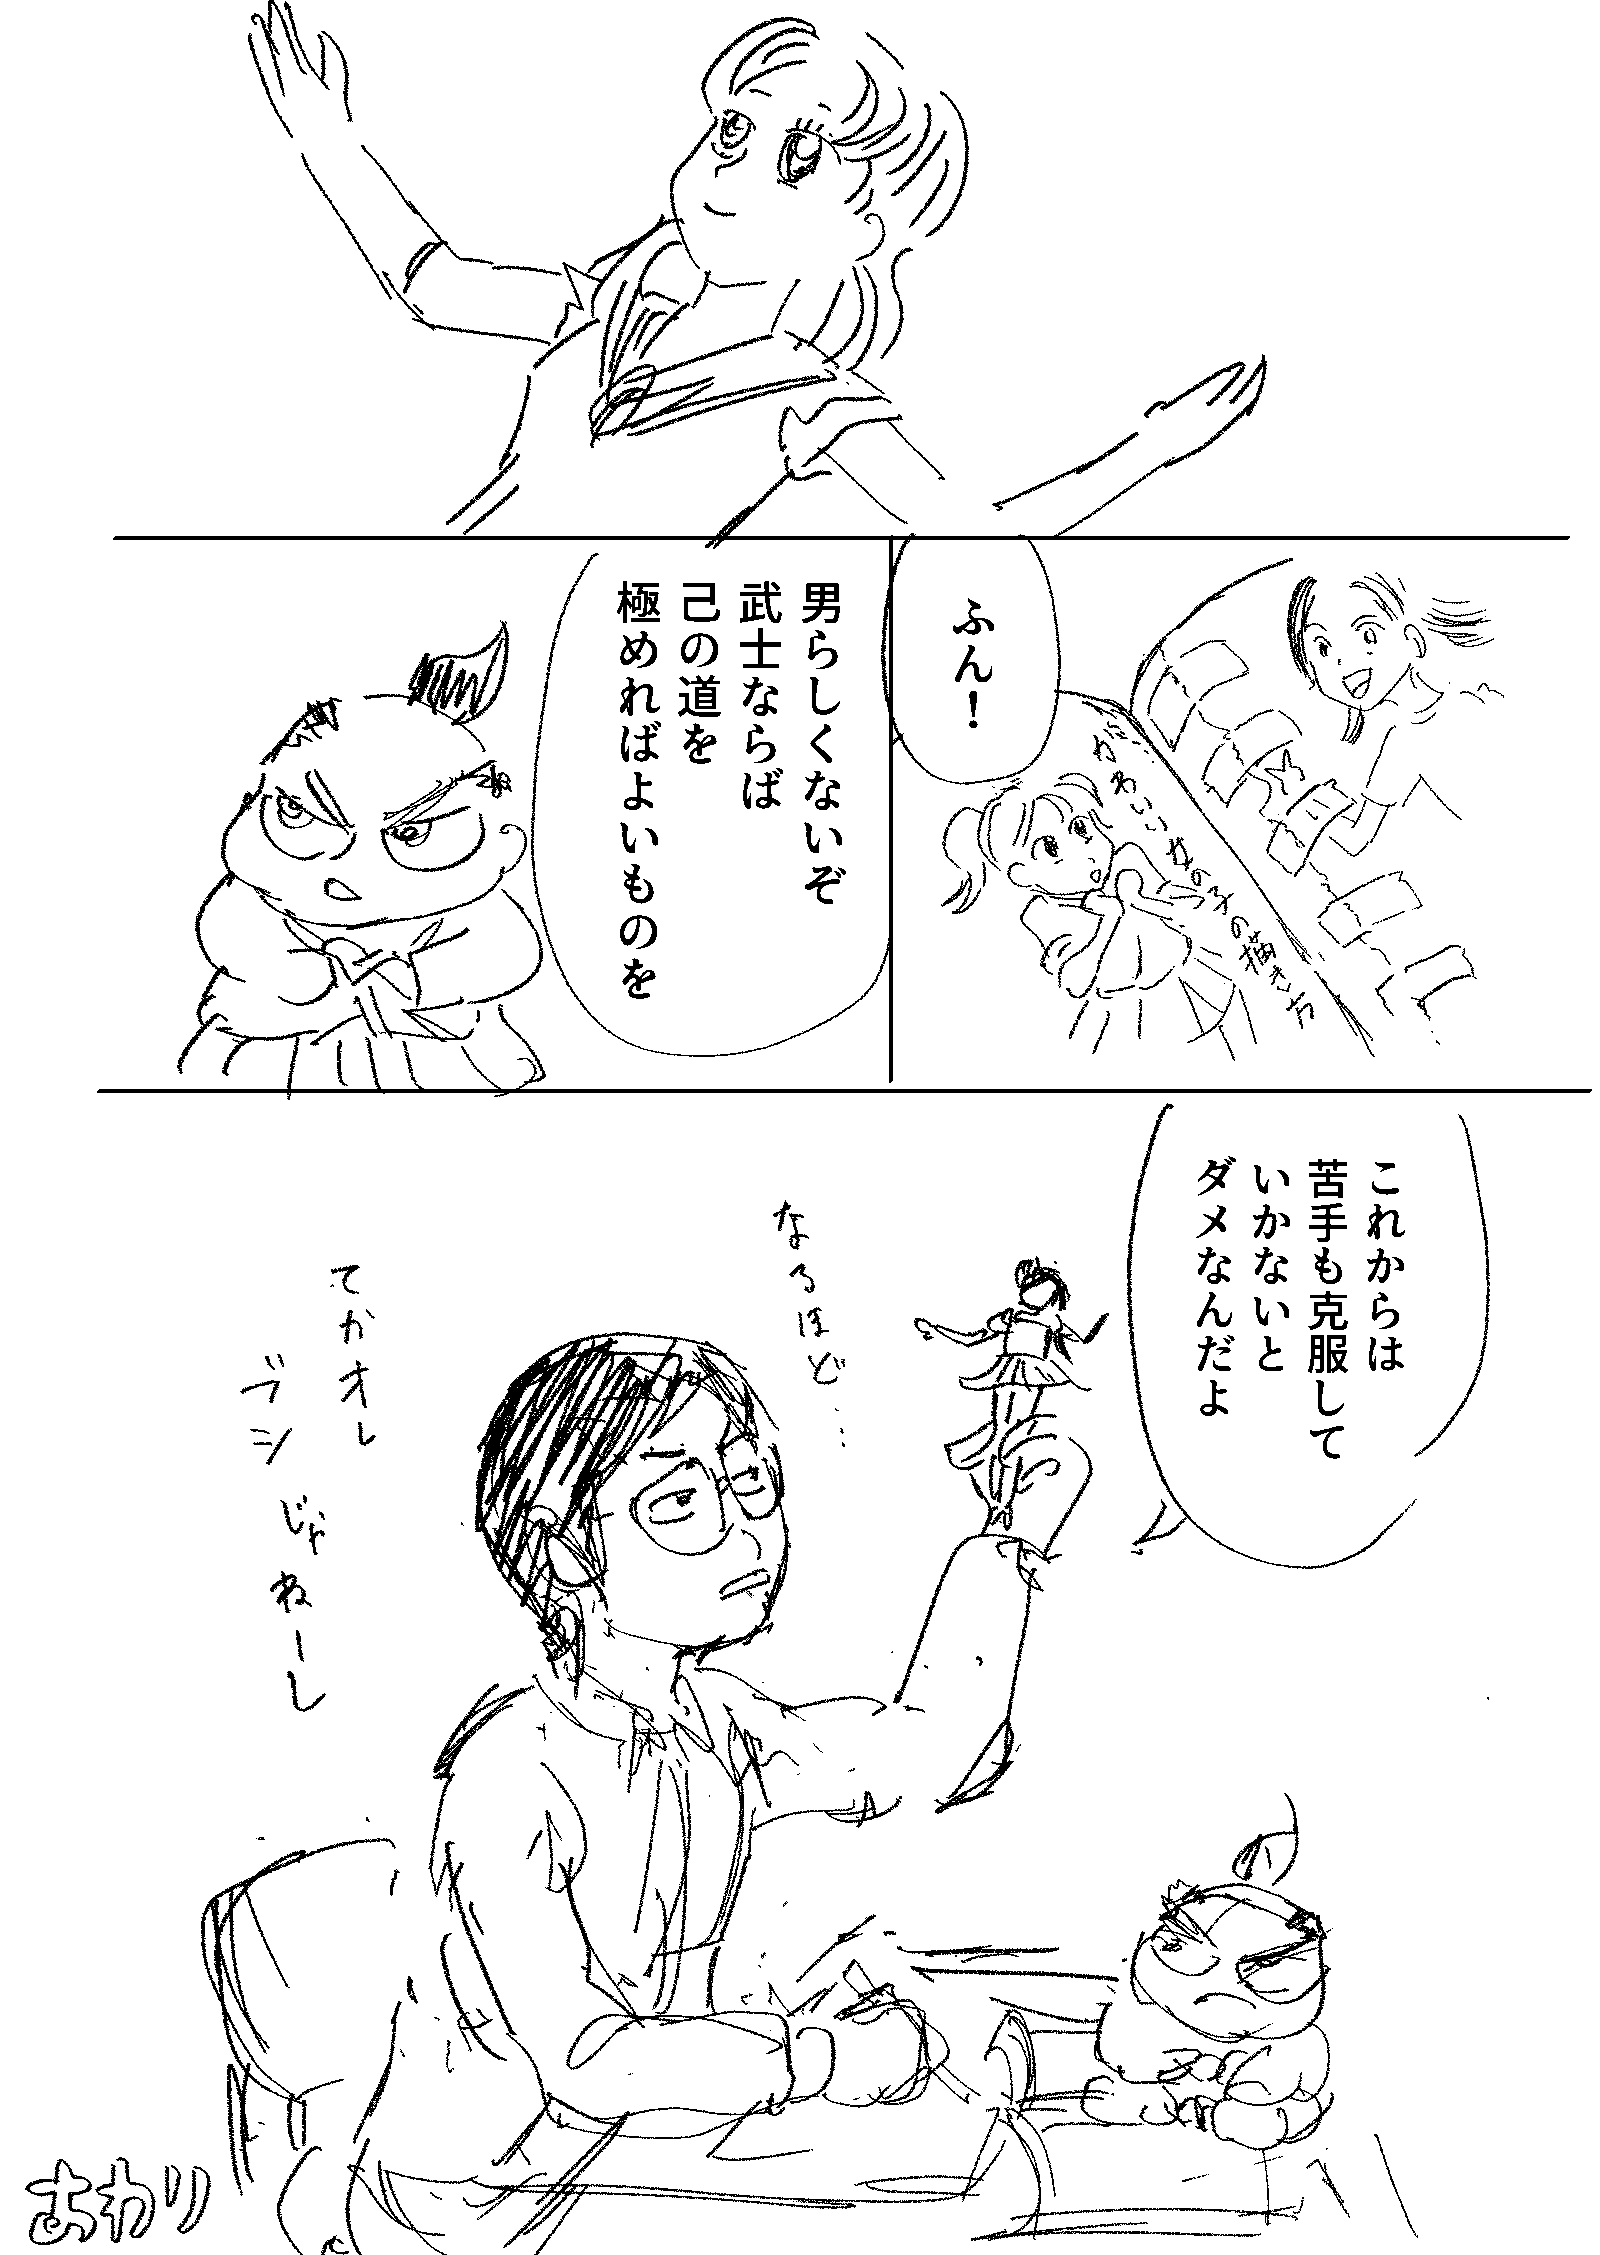 かわいい女の子の描き方
ふん！
男らしくないぞ
武士ならば
己の道を
極めればよいものを
これからは
苦手も克服して
いかないと
ダメなんだよ
なるほど…
てかオレ
ブシ
じゃねーし
おわり